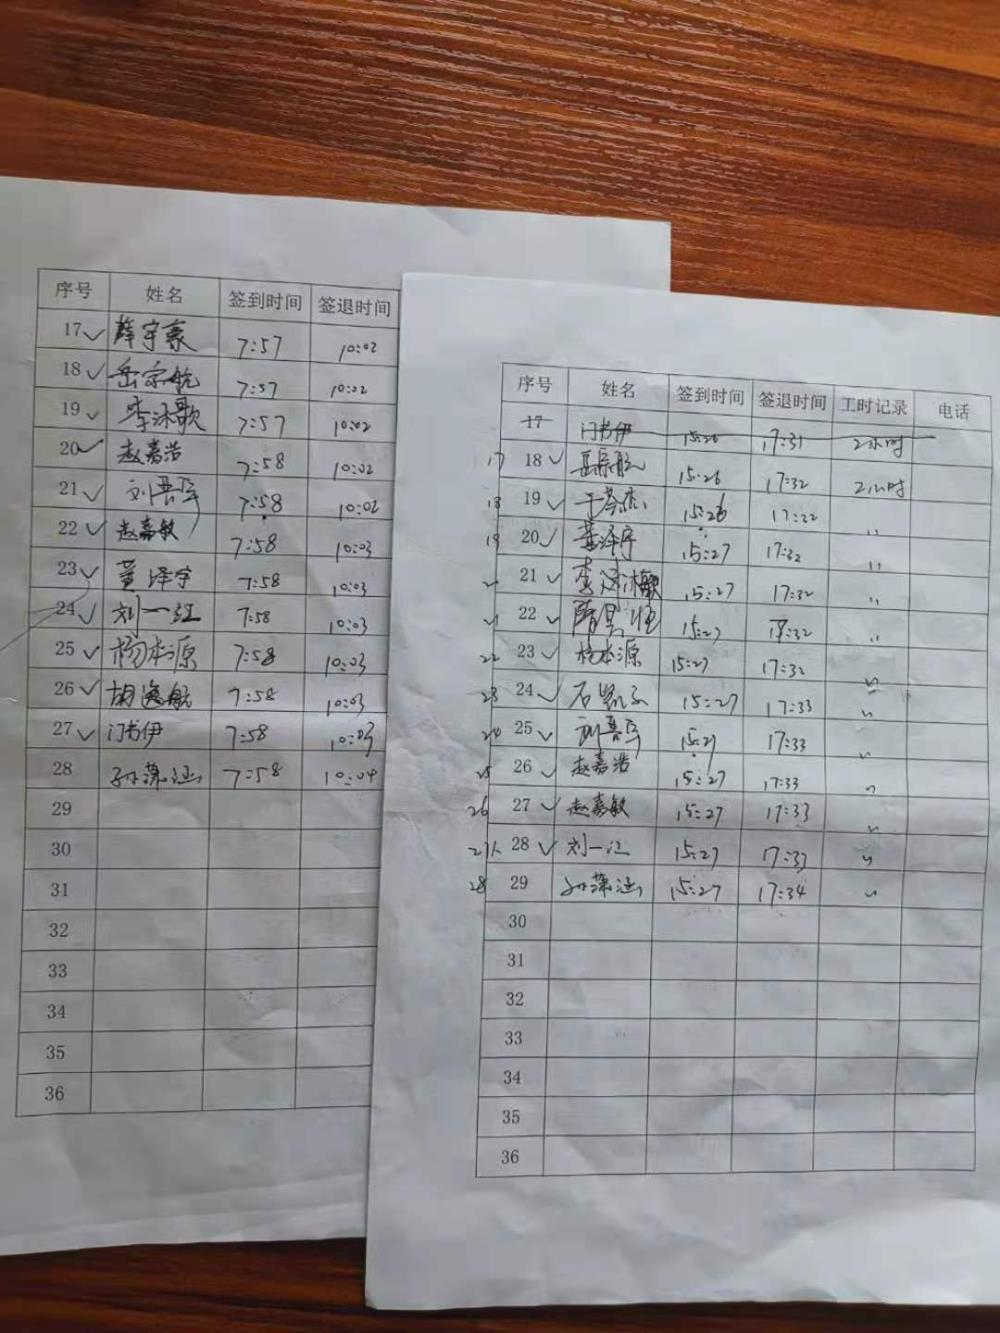 序号 姓名 签到时间 签退时间
17 薛宇豪 7:57 10:02
18 岳宗航 7:57 10:02
19 李沐歌 7:57 10:02
20 赵嘉浩 7:58 10:02
21 7:58 10:02
22 赵嘉敏 7:58 10:03
23 董泽宇 7:58 10:03
24 刘一江 7:58 10:03
25 杨本源 7:58 10:03
26 胡逸航 7:58 10:03
27 门书伊 7:58 10:03
28 7:58 10:04
29
30
31
32
33
34
35
36
序号 姓名 签到时间 签退时间 工时记录 电话
17 门书伊 15:26 17:31 2小时
17 18 岳宗航 15:26 17:32 2小时
18 19 15:26 17:32 〃
19 20 董泽宇 15:27 17:32 〃
21 李沐歌 15:27 17:32 〃
21 22 隋 15:27 17:32 〃
22 23 杨本源 15:27 17:32 〃
23 24 15:27 17:33 〃
24 25 15:27 17:33 〃
25 26 赵嘉浩 15:27 17:33 〃
26 27 赵嘉敏 15:27 17:33 〃
27人 28 刘一江 15:27 17:33 〃
28 29 15:27 17:34 〃
30
31
32
33
34
35
36